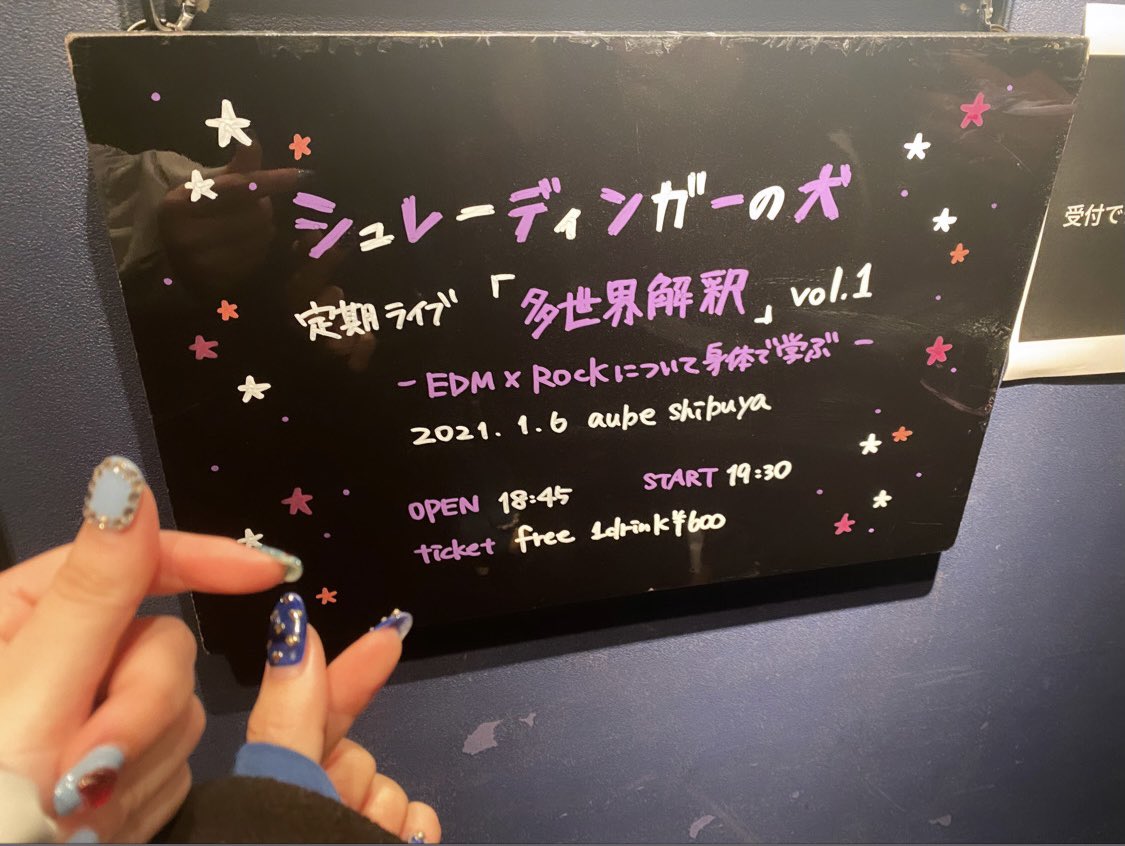 シュレーディンガーの犬
定期ライブ「多世界解釈」vol.1
-EDM×Rockについて身体で学ぶ-
2021.1.6 aube shibuya
OPEN 18:45 START 19:30
ticket free 1drink¥600
受付で